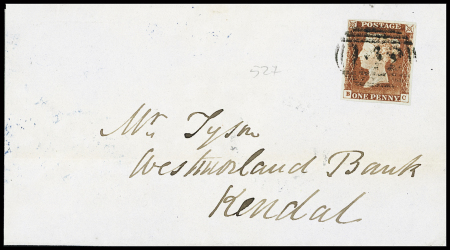 POSTAGE
ONE PENNY
527
Mr. Tyson
Westmorland Bank
Kendal